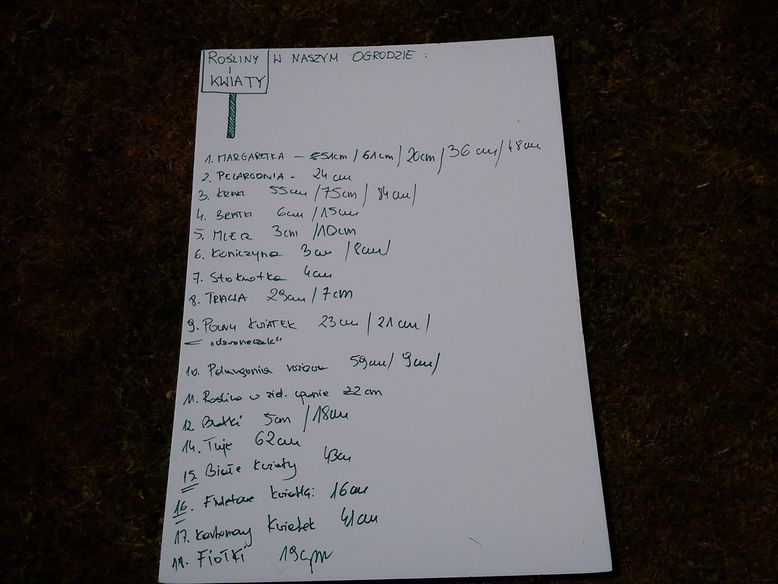 ROŚLINY I KWIATY W NASZYM OGRODZIE :
1. MARGARETKA – 51cm / 61cm / 20cm / 36 cm / 48cm
2. PELARGONIA - 24 cm
3. 55cm / 75cm / 84cm /
4. BRATKI 6cm / 15cm
5. MLECZ 3cm / 10cm
6. Koniczyna 3cm / 8cm /
7. Stokrotka 4cm
8. TRAWA 29cm / 7cm
9. POLNY KWIATEK 23cm / 21cm /
"dzwoneczek"
10. Pelargonia 59cm / 9cm /
11. Roślina w 22cm
12. Bratki 5cm / 18cm
14. Tuje 62cm
15. Białe kwiaty 43cm
16. 16cm
17. Kwiatek 41cm
FIOŁKI 19cm